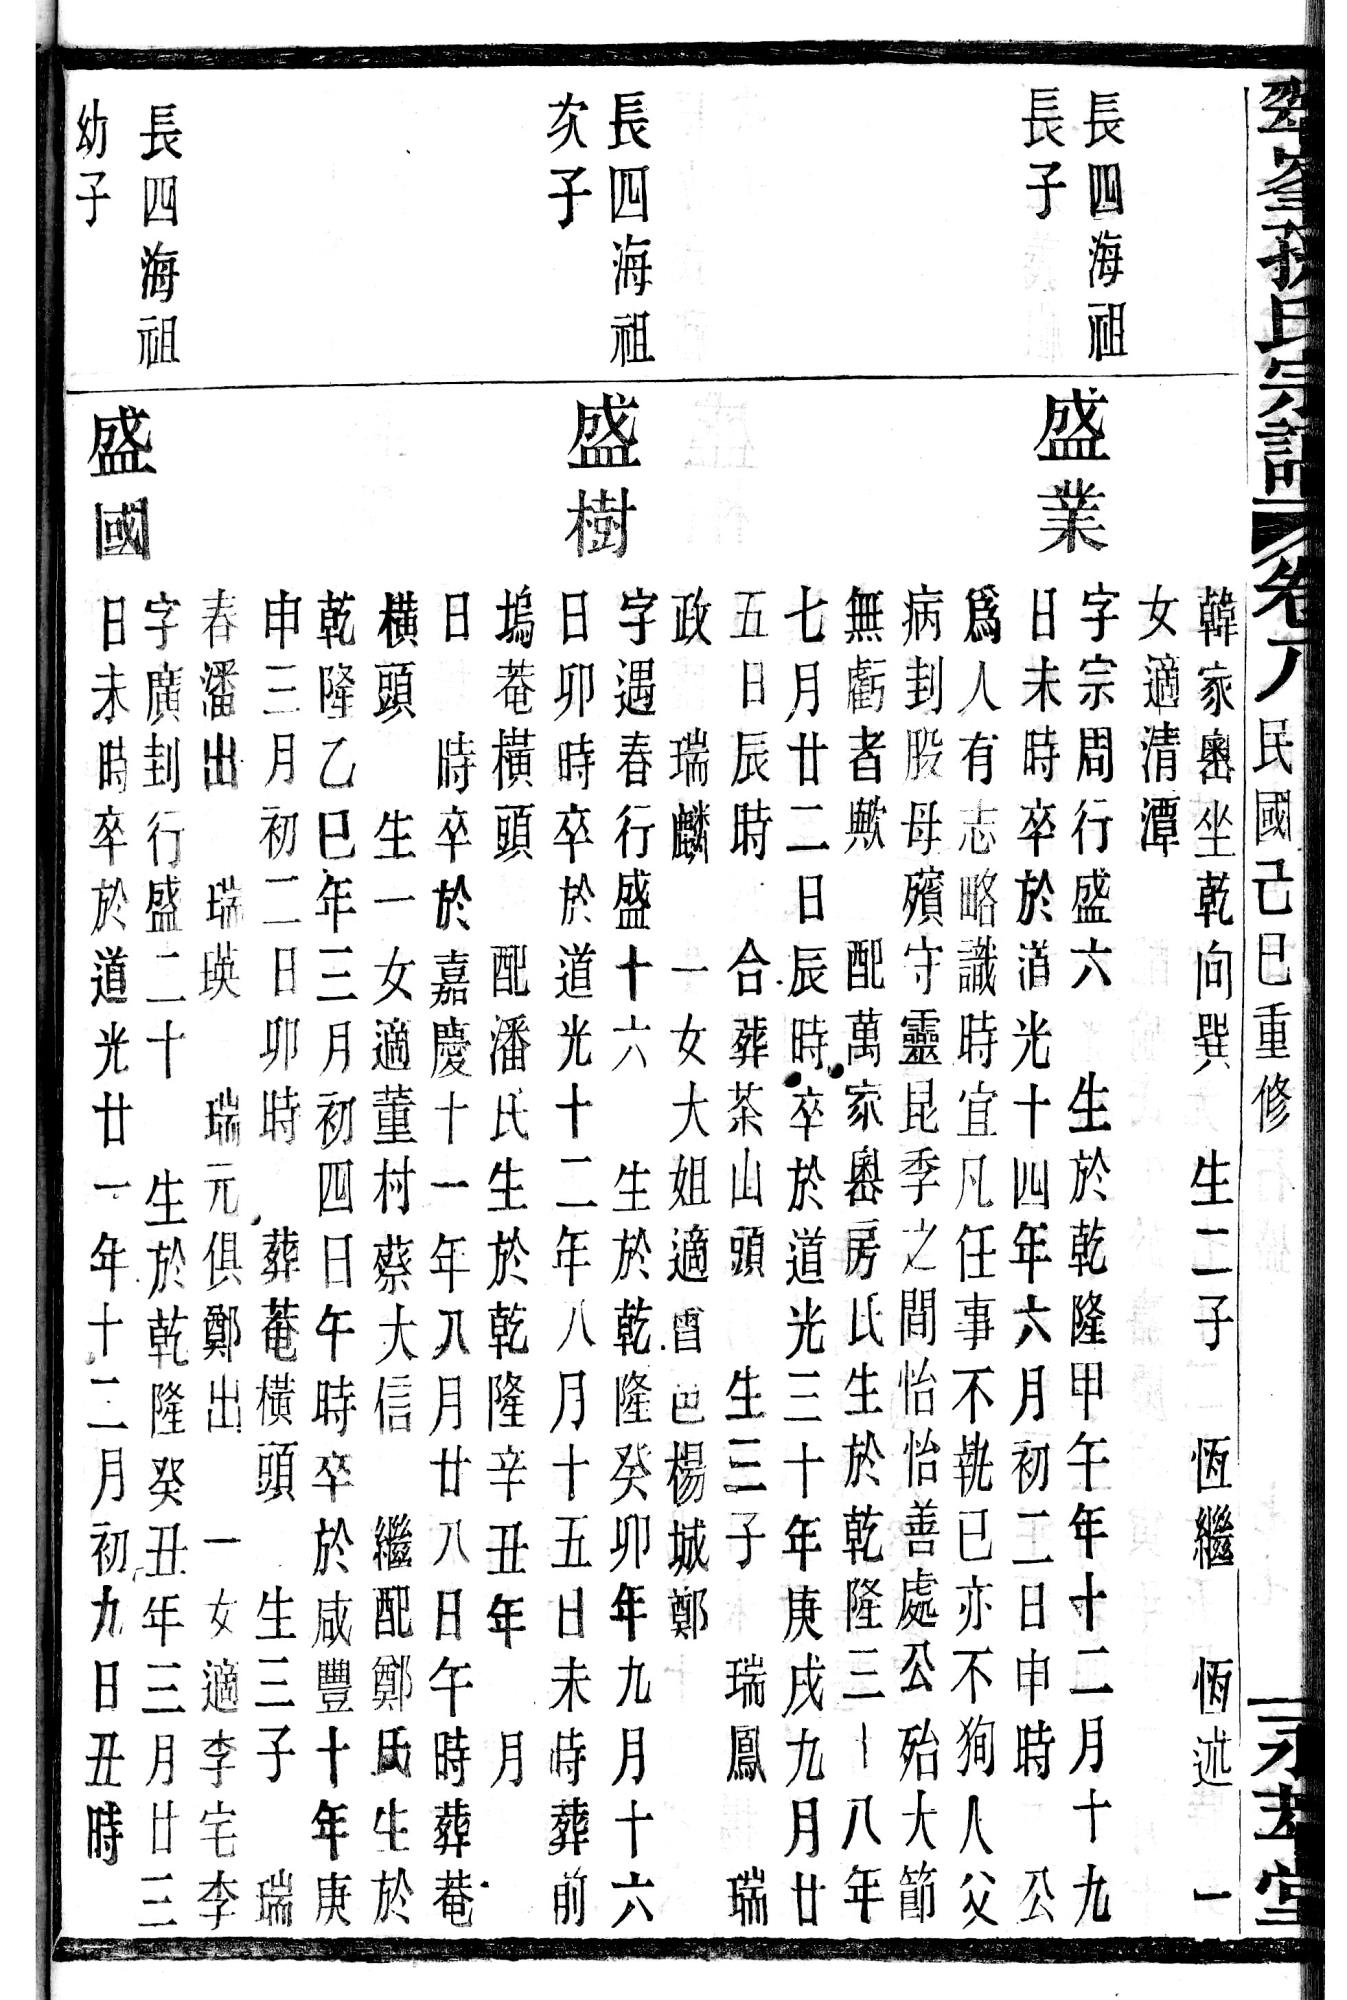 孫氏宗譜 卷八 民國己巳重修
韓家嶴坐乾向巽 生二子 恆繼 恆述 一
女適清潭
長四海祖
長子
盛業
字宗周行盛六 生於乾隆甲午年十二月十九
日未時卒於道光十四年六月初二日申時 公
爲人有志略識時宜凡任事不執已亦不狥人父
病刲股母殯守靈昆季之間怡怡善處公殆大節
無虧者歟 配萬家嶴房氏生於乾隆三十八年
七月廿二日辰時卒於道光三十年庚戌九月廿
五日辰時 合葬茶山頭 生三子 瑞鳳 瑞
政 瑞麟 一女大姐適 邑楊城鄭
長四海祖
次子
盛樹
字遇春行盛十六 生於乾隆癸卯年九月十六
日卯時卒於道光十二年八月十五日未時葬前
塢菴橫頭 配潘氏生於乾隆辛丑年 月
日 時卒於嘉慶十一年八月廿八日午時葬菴
橫頭 生一女適董村蔡大信 繼配鄭氏生於
乾隆乙巳年三月初四日午時卒於咸豐十年庚
申三月初二日卯時 葬菴橫頭 生三子 瑞
春潘出 瑞瑛 瑞元俱鄭出 一女適李宅李
長四海祖
幼子
盛國
字廣封行盛二十 生於乾隆癸丑年三月廿三
日未時卒於道光廿一年十二月初九日丑時